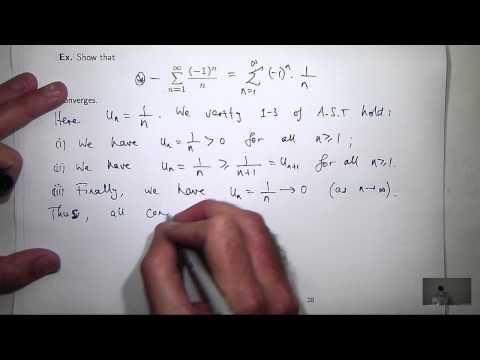 Ex. Show that
⊛ - ∑_{n=1}^{∞} (-1)^n / n = ∑_{n=1}^{∞} (-1)^n · 1/n
converges.
Here u_n = 1/n. We verify 1-3 of A.S.T hold:
(i) We have u_n = 1/n > 0 for all n ≥ 1;
(ii) We have u_n = 1/n ≥ 1/(n+1) = u_{n+1} for all n ≥ 1.
(iii) Finally, we have u_n = 1/n → 0 (as n→∞).
Thus, all con